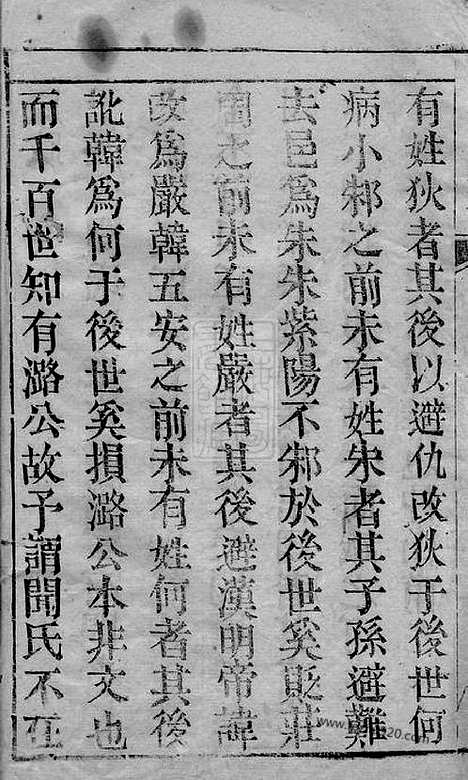 有姓狄者其後以避仇改狄于後世何
病小邾之前未有姓朱者其子孫避難
去邑爲朱朱紫陽不邾於後世奚貶莊
周之前未有姓嚴者其後避漢明帝諱
改爲嚴韓五安之前未有姓何者其後
訛韓爲何于後世奚損潞公本非文也
而千百世知有潞公故予謂聞氏不在